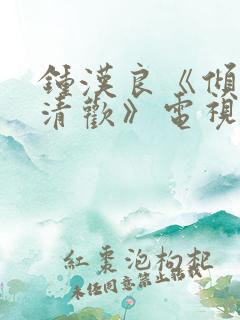 鍾漢良《傾
清歡》電視
紅棗泡枸杞
未經同意禁止轉載